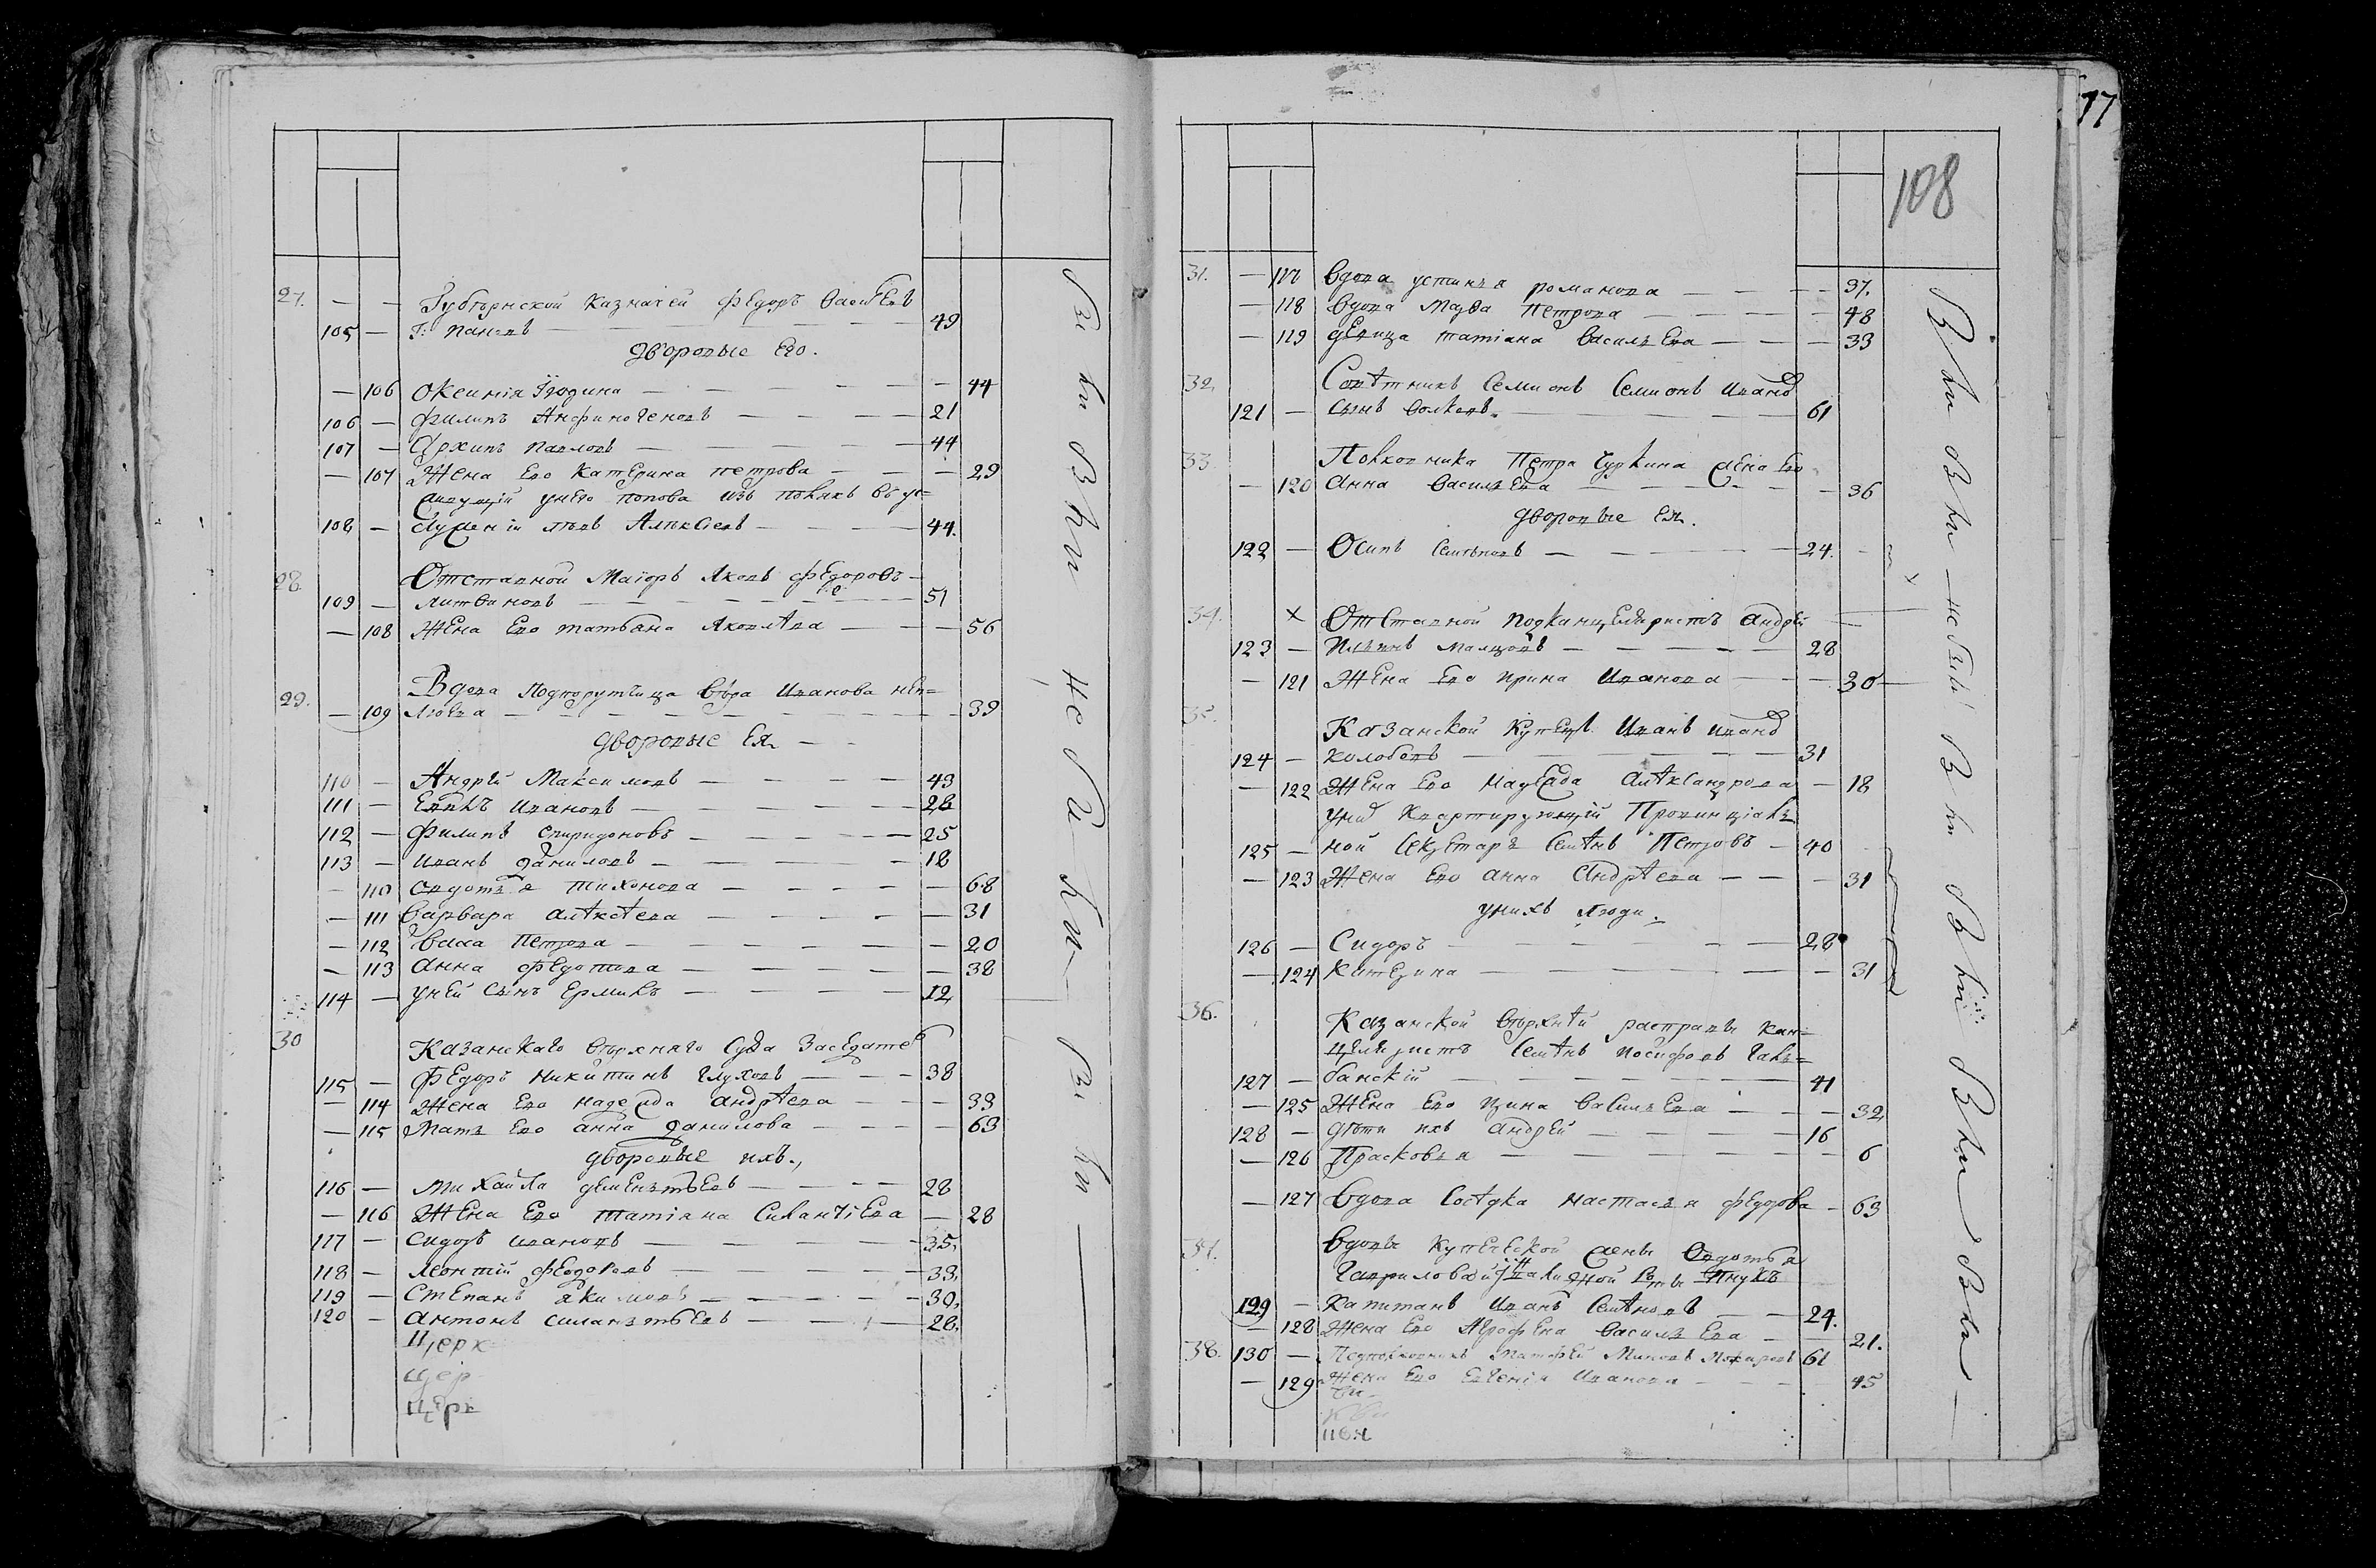 27. — — Губернской казначей Федоръ Васил Евъ
105 — г: Пановъ — 49
дворовые Его.
— 106 Оксиния Июдина — 44
106 — Филипъ Анфиногеновъ — 21
107 — Архипъ Павловъ — 44
— 107 Жена Его Катерина петрова — 29
108 — Алексеевъ — 44.
28 Отставной Маіоръ Яковъ Федоровъ
109 — Литвиновъ — 51
— 108 Жена Его татьяна Яковлева — 56
29. Вдова Подпорутчица Вѣра Иванова неп=
— 109 люева — 39
дворовые Ея —
110 — Андрей Максимовъ — 43
111 — Иванов — 28
112 — Филипъ спиридоновъ — 25
113 — Иванъ данилов — 18
— 110 Авдотья тихонова — 68
— 111 Варвара алексеева — 31
— 112 Васа Петрова — 20
— 113 Анна Федотова — 38
114 — уней Сынъ Ермилъ — 12
30 Казанскаго верхняго Суда Заседатель
115 — Федоръ Никитинъ Глуховъ — 38
— 114 Жена Его надежда андреева — 33
— 115 Мать Его анна данилова — 63
дворовые ихъ.,
116 — Михайла деменьтьевъ — 28
— 116 Жена Его татіяна Силантіева — 28
117 — сидоръ ивановъ — 35.
118 — леонтій феодоровъ — 33.
119 — Степанъ якимовъ — 30.
120 — Антонъ силаньтьевъ — 28.
Церк
цер
Церк
77
108
31. — 117 Вдова устинья романова — 37.
— 118 Вдова Марфа Петрова — 48
— 119 девица татіана Васильева — 33
32. Советникъ Семионъ Семионъ Иванов
121 — сынъ волковъ. — 61
33. Полковника Петра Чуркина жена Его
— 120 Анна Васильева — 36
дворовые Ея.
122 — Осипъ Семеновъ — 24.
34. × Отставной подканцеляристъ Андрей
123 — Ильинъ Малцовъ — 28
— 121 Жена Его Ирина Иванова — 30
35. Казанской Купецъ Иванъ Иванов
124 — колобовъ — 31
— 122 Жена Его Надежда Александрова — 18
унив Квартирующій Провинціаль
125 — ной Секретарь Семенъ Петровъ — 40
— 123 Жена Его анна Андреева — 31
унихъ люди.
126 — Сидоръ — 28
— 124 Катерина — 31
36. Казанской верхней расправы кан=
целяристъ Семенъ иосифовъ Галь=
127 — банскій — 41
— 125 Жена Его Ирина Васильева — 32
128 — дети ихъ андрей — 16
— 126 Прасковья — 6
— 127 Вдова Соседка настасья федорова — 63
37. Вдовы Купеческой жены Авдотья
129 — Капитанъ Иванъ Семеновъ — 24.
— 128 Жена Его Аграфена Васильева — 21.
38. 130 — Подполковникъ Матфей Миновъ Мокаровъ 61
— 129 Жена Его Евгенія Иванова — 45